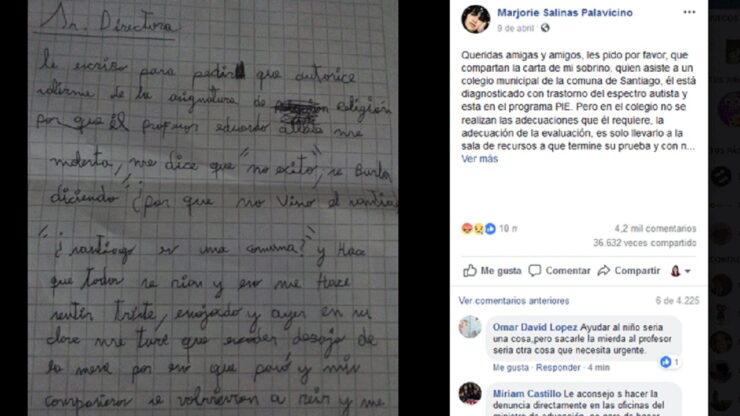 Sr. Directora
le escribo para pedir que autorice
eximirme de la asignatura de religión
por que él profesor eduardo me
molesta, me dice que "no exito", se burla
diciendo "¿por que no Vino el santia
"¿santiago es una comuna?" y Hace
que todos se rian y eso me Hace
sentir triste, enojado y ayer en su
clase me tuve que esconder debajo de
la mesa por eso que pasó y mis
compañeros se volvieron a reir y me
Marjorie Salinas Palavicino
9 de abril
Queridas amigas y amigos, les pido por favor, que
compartan la carta de mi sobrino, quien asiste a un
colegio municipal de la comuna de Santiago, él está
diagnosticado con trastorno del espectro autista y
esta en el programa PIE. Pero en el colegio no se
realizan las adecuaciones que él requiere, la
adecuación de la evaluación, es solo llevarlo a la
sala de recursos a que termine su prueba y con n...
Ver más
10 m
4,2 mil comentarios
36.632 veces compartido
Me gusta Comentar Compartir
Ver comentarios anteriores 6 de 4.225
Omar David Lopez Ayudar al niño seria
una cosa,pero sacarle la mierda al profesor
seria otra cosa que necesita urgente.
1
Me gusta · Responder · 3 sem
Miriam Castillo Le aconsejo s hacer la
denuncia directamente en las oficinas del